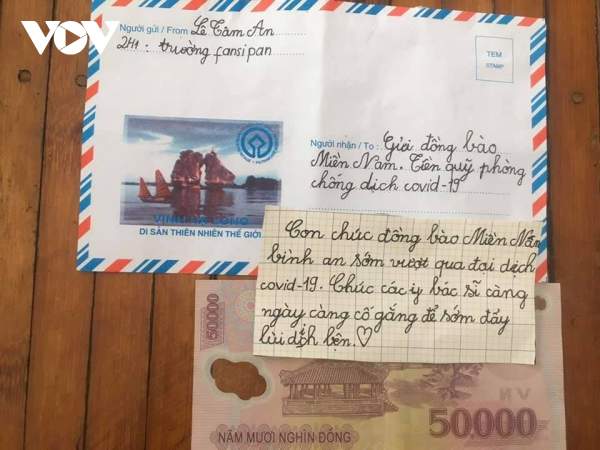 VOV
Người gửi / From Lê Tâm An
2H1. trường fansipan
TEM
STAMP
Người nhận / To : Gửi đồng bào
Miền Nam. Tiền quỹ phòng
chống dịch covid-19
VỊNH HẠ LONG
DI SẢN THIÊN NHIÊN THẾ GIỚI
Con chúc đồng bào Miền Nam
bình an sớm vượt qua đại dịch
covid-19. Chúc các y bác sĩ càng
ngày càng cố gắng để sớm đẩy
lùi dịch bện.♡
50000
VN
NĂM MƯƠI NGHÌN ĐỒNG
50.000